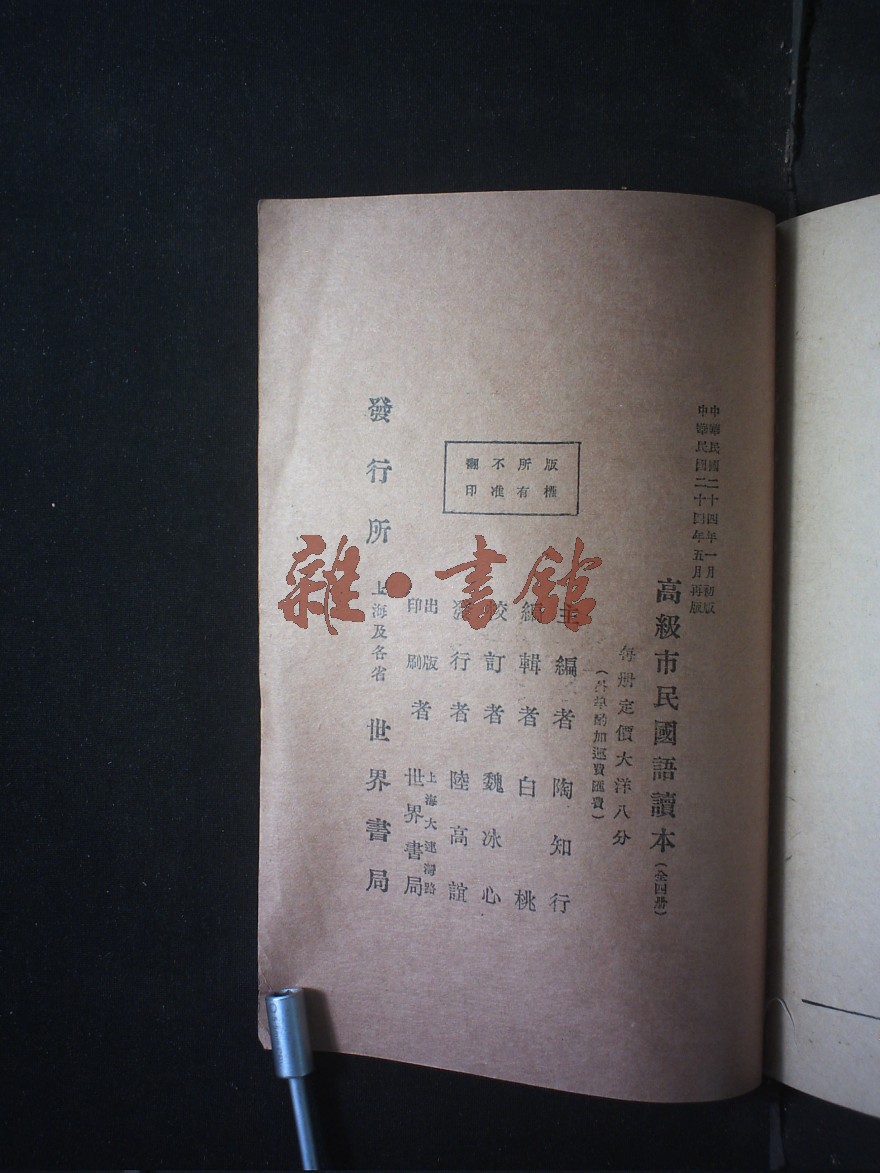 中華民國二十四年一月初版
中華民國二十四年五月再版
高級市民國語讀本(全四册)
每册定價大洋八分
(外埠酌加運費匯費)
版權所有不准翻印
主編者陶知行
編輯者白桃
校訂者魏冰心
發行者陸高誼
出版印刷者 上海大連灣路 世界書局
發行所 上海及各省 世界書局
雜·書館